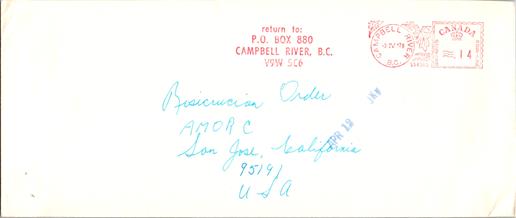 return to:
P.O. BOX 880
CAMPBELL RIVER, B.C.
V9W 5C6
CAMPBELL RIVER
B.C.
CANADA
14
Rosicrucian Order
AMORC
San Jose, California
95191
USA
APR 12